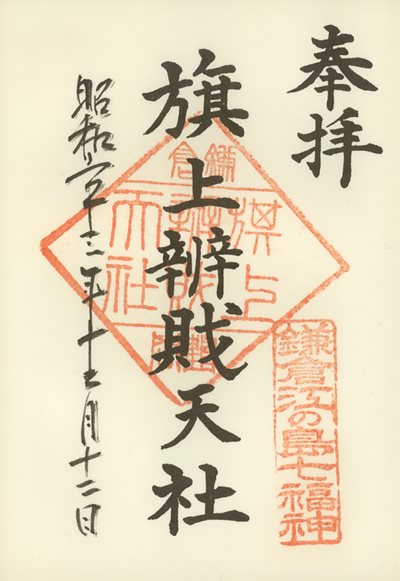 奉拝
鎌倉江の島七福神
旗上辨戝天社
鎌倉
旗上
天社
昭和六十三年十二月十二日